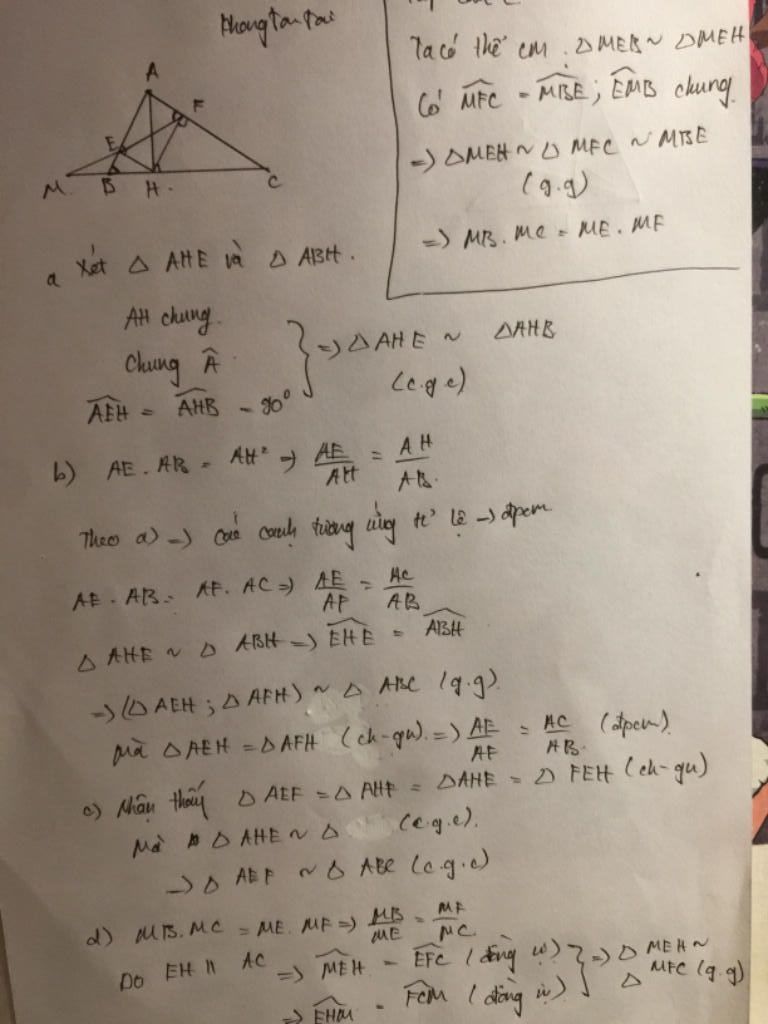 Khong tồn tại
Ta có thể cm : △MEB ~ △MEH
Có MFC = MBE ; EMB chung
=> △MEH ~ △ MFC ~ MBE
(g.g)
=> MB . MC = ME . MF
A
F
E
M
B
H
C
a Xét △ AHE và △ ABH .
AH chung
Chung Â
AEH = AHB = 90° } => △AHE ~ △AHB
(c.g.c)
b) AE . AB = AH² => AE/AH = AH/AB
Theo a) => các cạnh tương ứng tỉ lệ -> đpcm
AE . AB = AF . AC => AE/AF = AC/AB
△ AHE ~ △ ABH => EHE = ABH
=> (△ AEH ; △ AFH) ~ △ ABC (g.g)
mà △AEH = △AFH (ch-gn) => AE/AF = AC/AB (đpcm)
c) Nhận thấy △ AEF = △ AHF = △AHE = △ FEH (ch-gn)
Mà △ AHE ~ △ (c.g.c).
-> △ AEF ~ △ ABC (c.g.c)
d) MB.MC = ME.MF => MB/ME = MF/MC
Do EH // AC => MEH = EFC (đồng vị) } => △ MEH ~
△ MFC (g.g)
=> EHM = FCM (đồng vị)